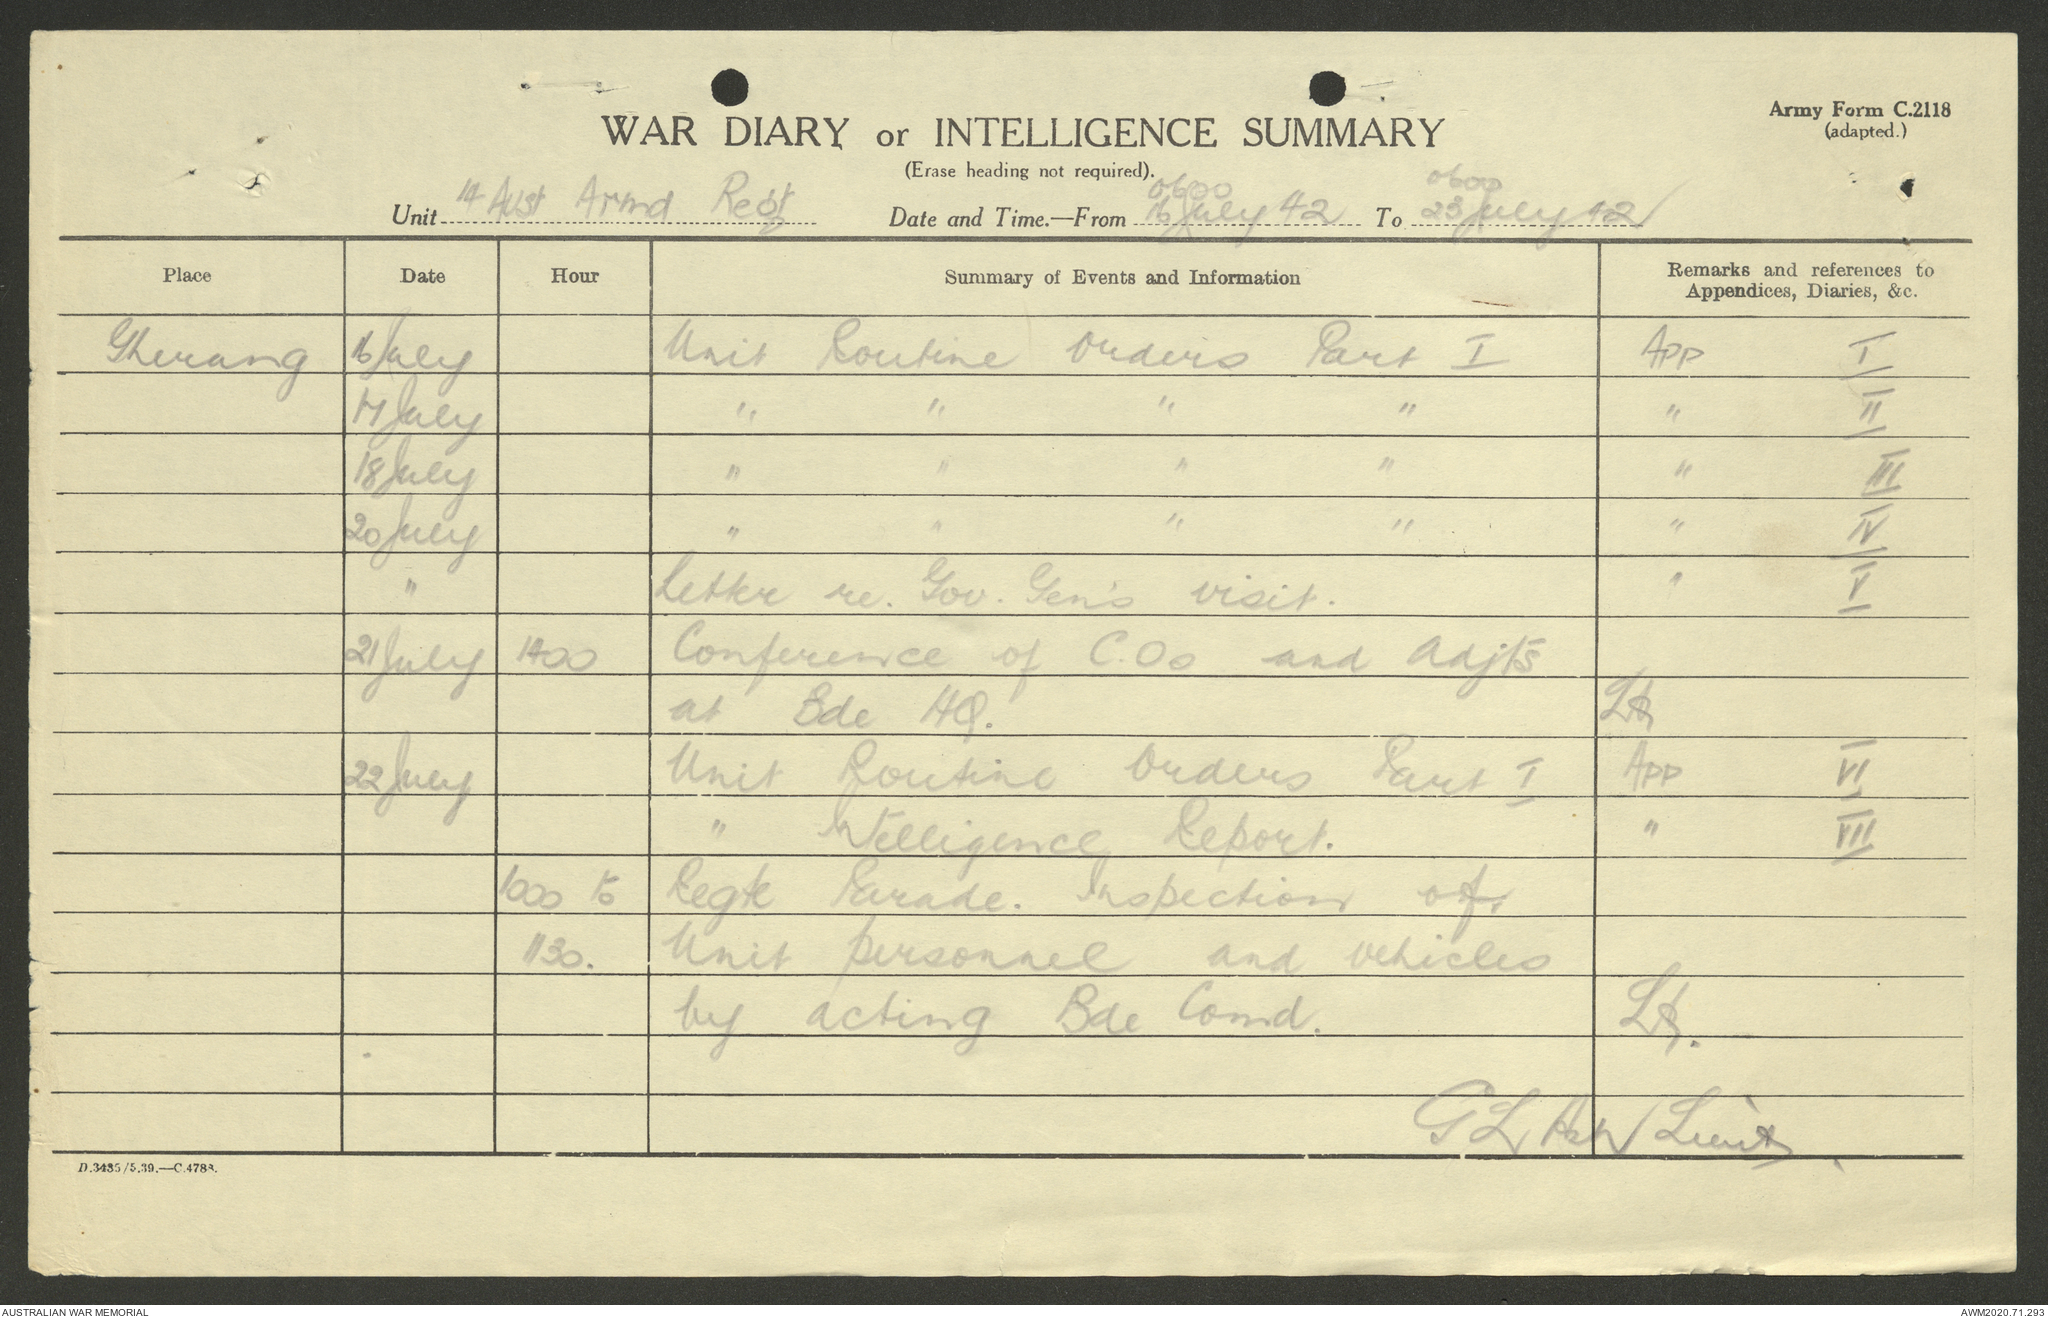 Army Form C.2118
(adapted.)
WAR DIARY or INTELLIGENCE SUMMARY
(Erase heading not required).
Unit 14 Aust Armd Regt Date and Time.—From 0600 16 July 42 To 0600 23 July 42
Place Date Hour Summary of Events and Information Remarks and references to Appendices, Diaries, &c.
Gherang 16 July Unit Routine Orders Part I App I
17 July " " " " " II
18 July " " " " " III
20 July " " " " " IV
" Letter re. Gov. Gen's visit. " V
21 July 1400 Conference of C.Os and Adjts
at Bde HQ.
22 July Unit Routine Orders Part I App VI
" Intelligence Report. " VII
1000 to Regtl Parade. Inspection of
1130. Unit personnel and vehicles
by acting Bde Comd.
G L Lieut
D.3435/5.39.—C.4788.
AUSTRALIAN WAR MEMORIAL
AWM2020.71.293